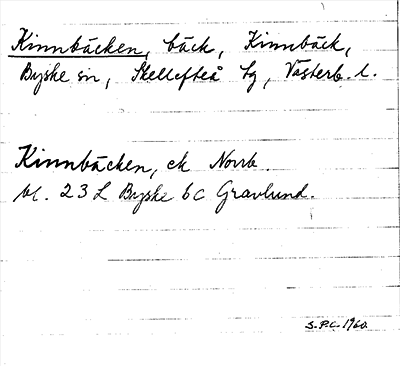 Kinnbäcken, bäck, Kinnbäck,
Byske sn, Skellefteå tg, Västerb. l.
Kinnbäcken, ek Norrb.
bl. 23 L Byske 6 c Gravlund.
S.P.C. 1960.